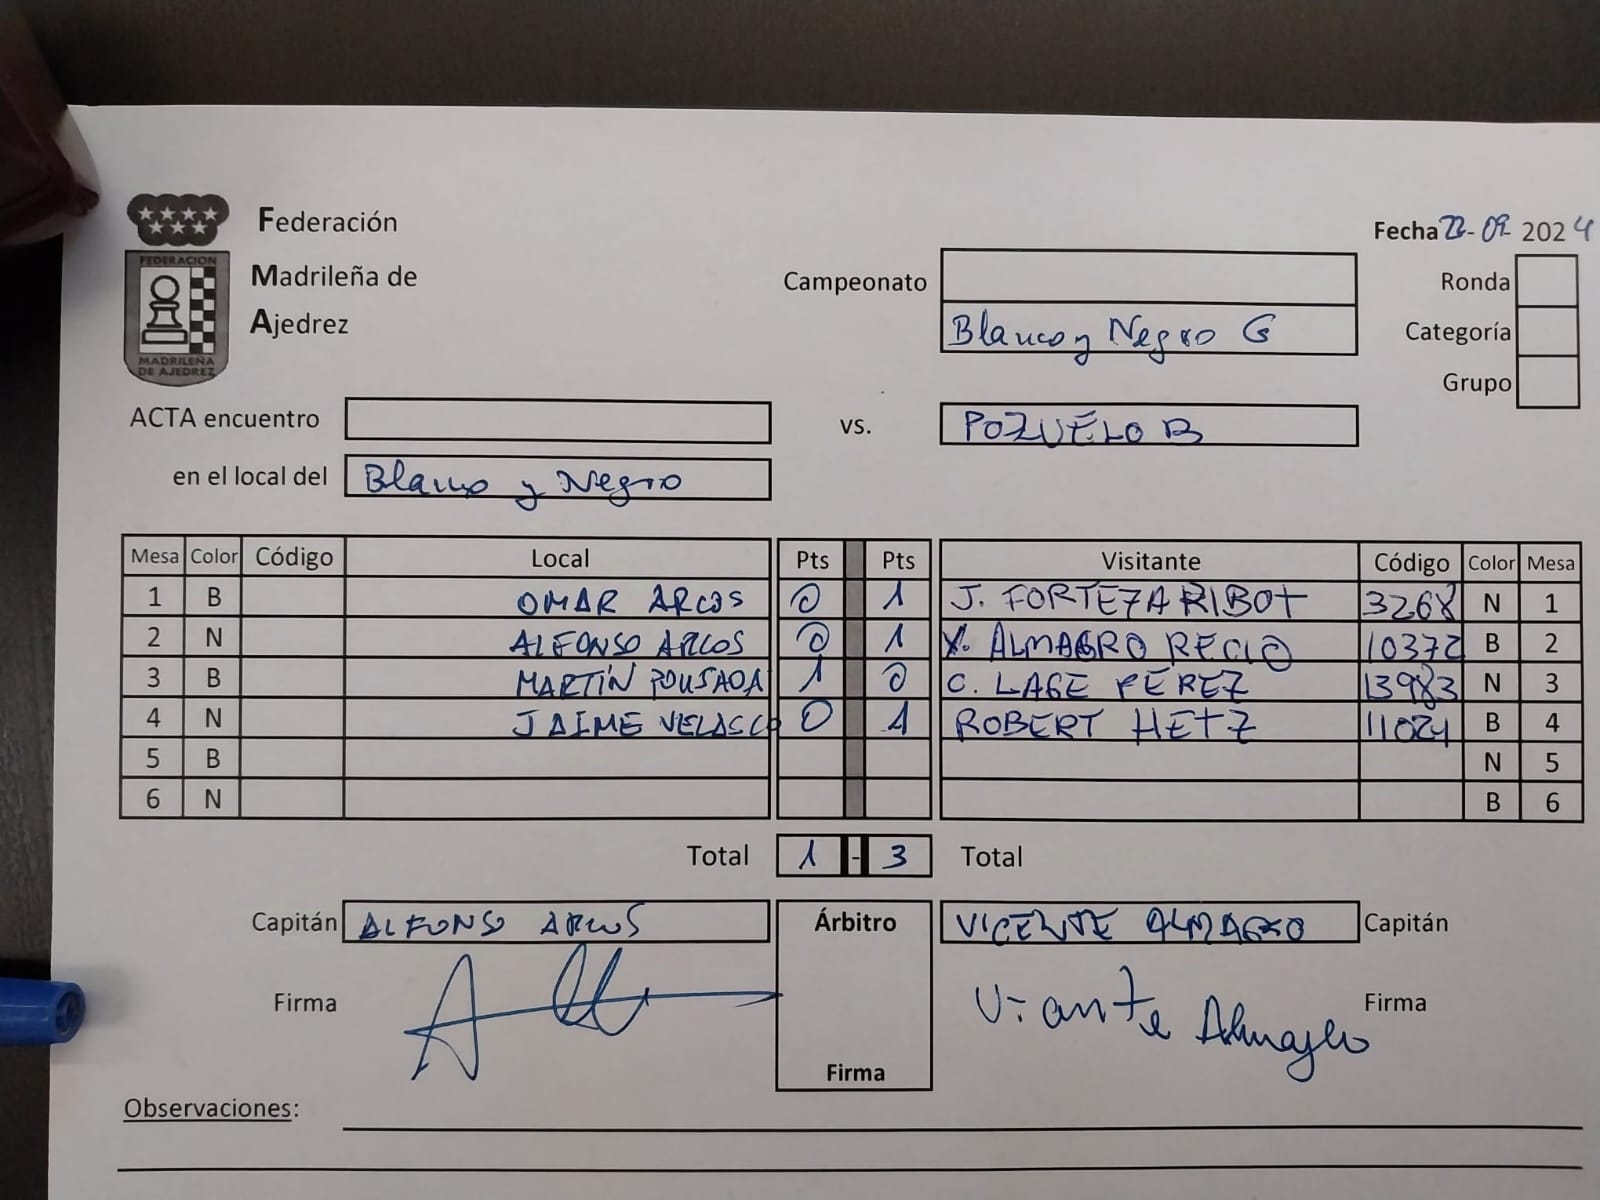 Federación
Madrileña de
Ajedrez
FEDERACION
MADRILEÑA
DE AJEDREZ
Fecha 22-09-2024
Campeonato
Blanco y Negro G
Ronda
Categoría
Grupo
ACTA encuentro vs. POZUELO B
en el local del Blanco y Negro
Mesa Color Código Local Pts Pts Visitante Código Color Mesa
1 B OMAR ARCOS 0 1 J. FORTEZA RIBOT 3268 N 1
2 N ALFONSO ARCOS 0 1 V. ALMAGRO RECIO 10372 B 2
3 B MARTÍN POUSADA 1 0 C. LAGE PÉREZ 13983 N 3
4 N JAIME VELASCO 0 1 ROBERT HETZ 11024 B 4
5 B N 5
6 N B 6
Total 1 - 3 Total
Capitán ALFONSO ARCOS Árbitro VICENTE ALMAGRO Capitán
Firma Vicente Almagro Firma
Firma
Observaciones: